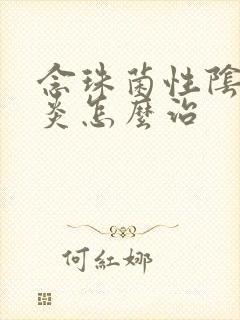 念珠菌性陰
炎怎麼治
何紅娜